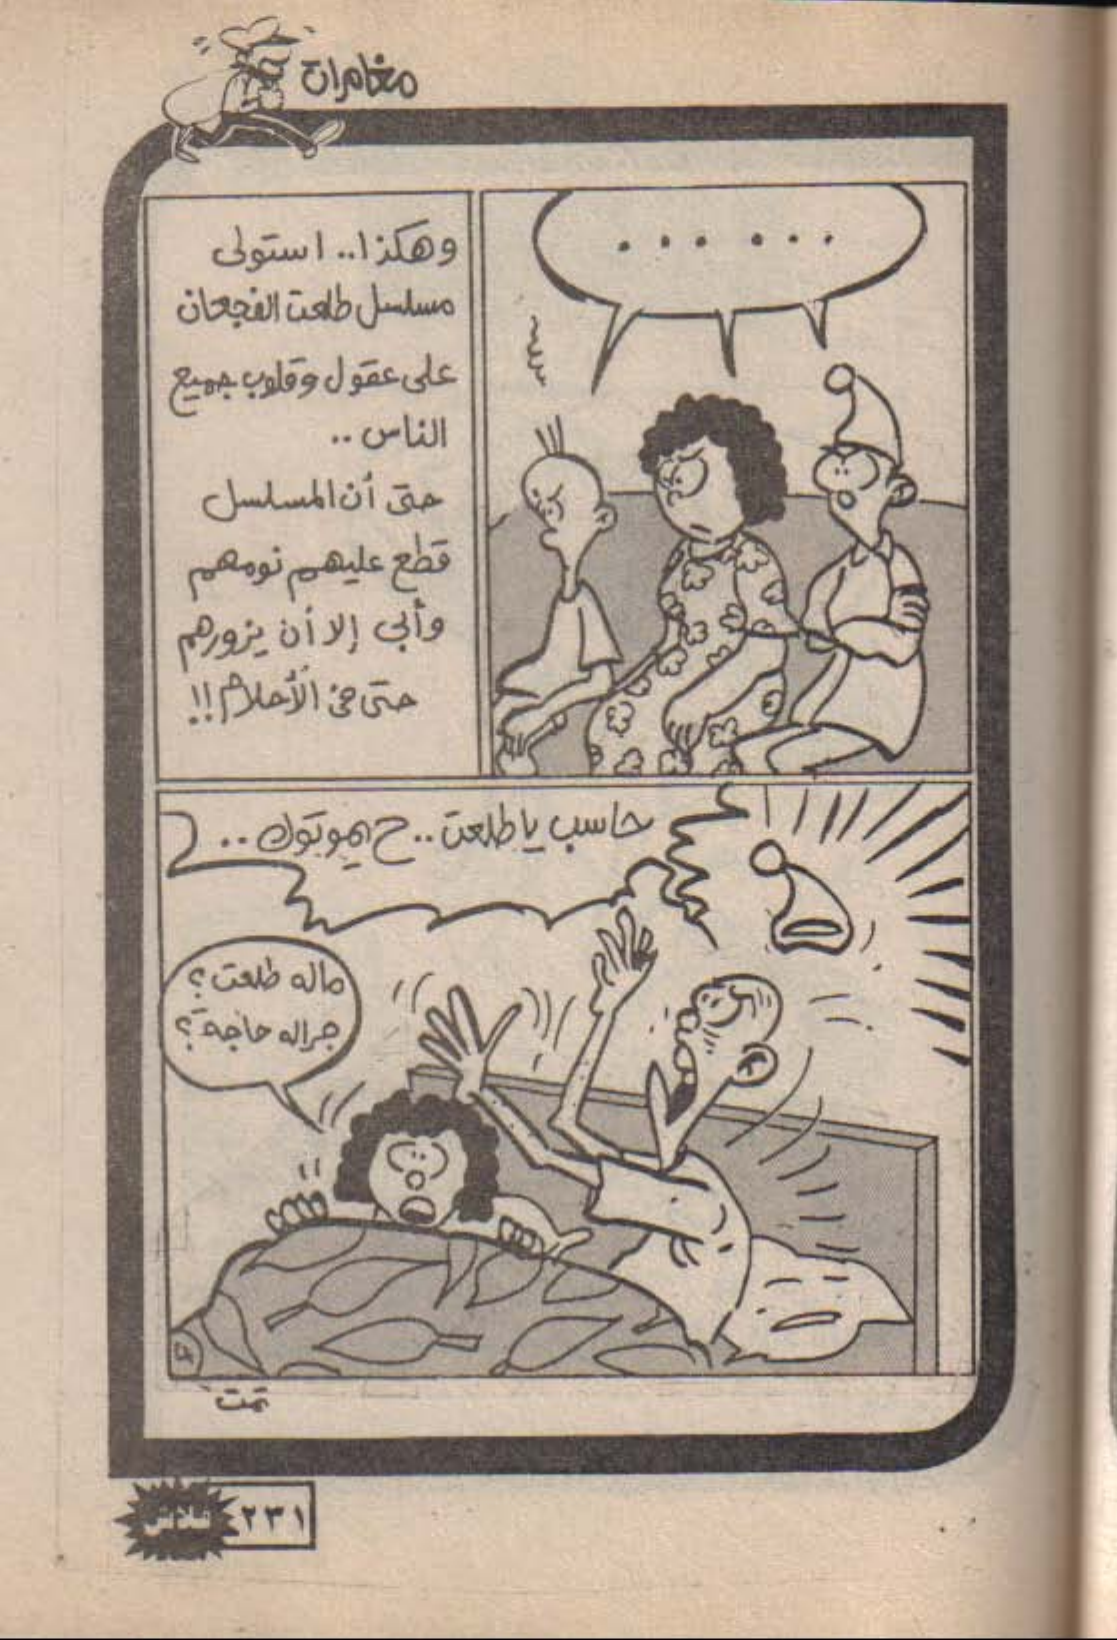 مغامرات
. . . . . .
وهكذا.. استولى
مسلسل طلعت الفجعان
على عقول وقلوب جميع
الناس ..
حتى أن المسلسل
قطع عليهم نومهم
وأبى إلا أن يزورهم
حتى فى الأحلام!!
حاسب يا طلعت.. ح يموتوك ..
ماله طلعت؟
جراله حاجة؟
تمت
فلاش
٢٣١